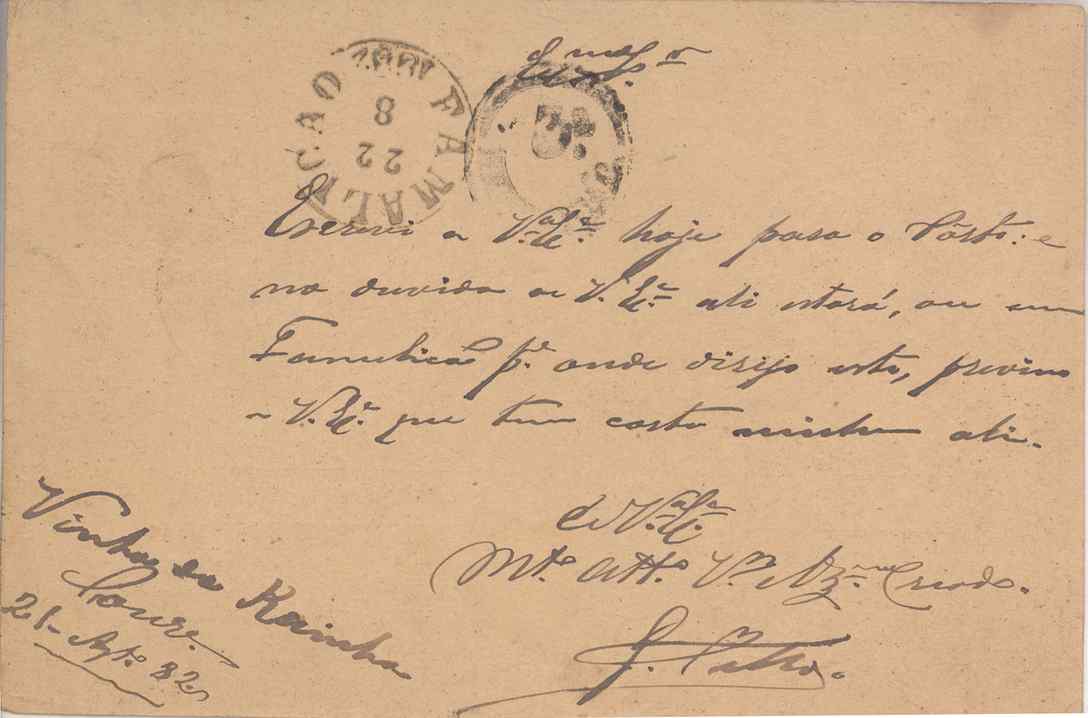 FAMALICÃO
22
8
Exmo Sr
Escrevi a V. Exa hoje para o Pôrto: e
na duvida se V. Exa ali estará, ou em
Famalicão pa onde dirijo esta, previno
a V. Exa que tem carta minha ali.
de V. Exa
Mto Atto Vor e Criado.
Vinha da Rainha
Soure.
21 - Agto 82